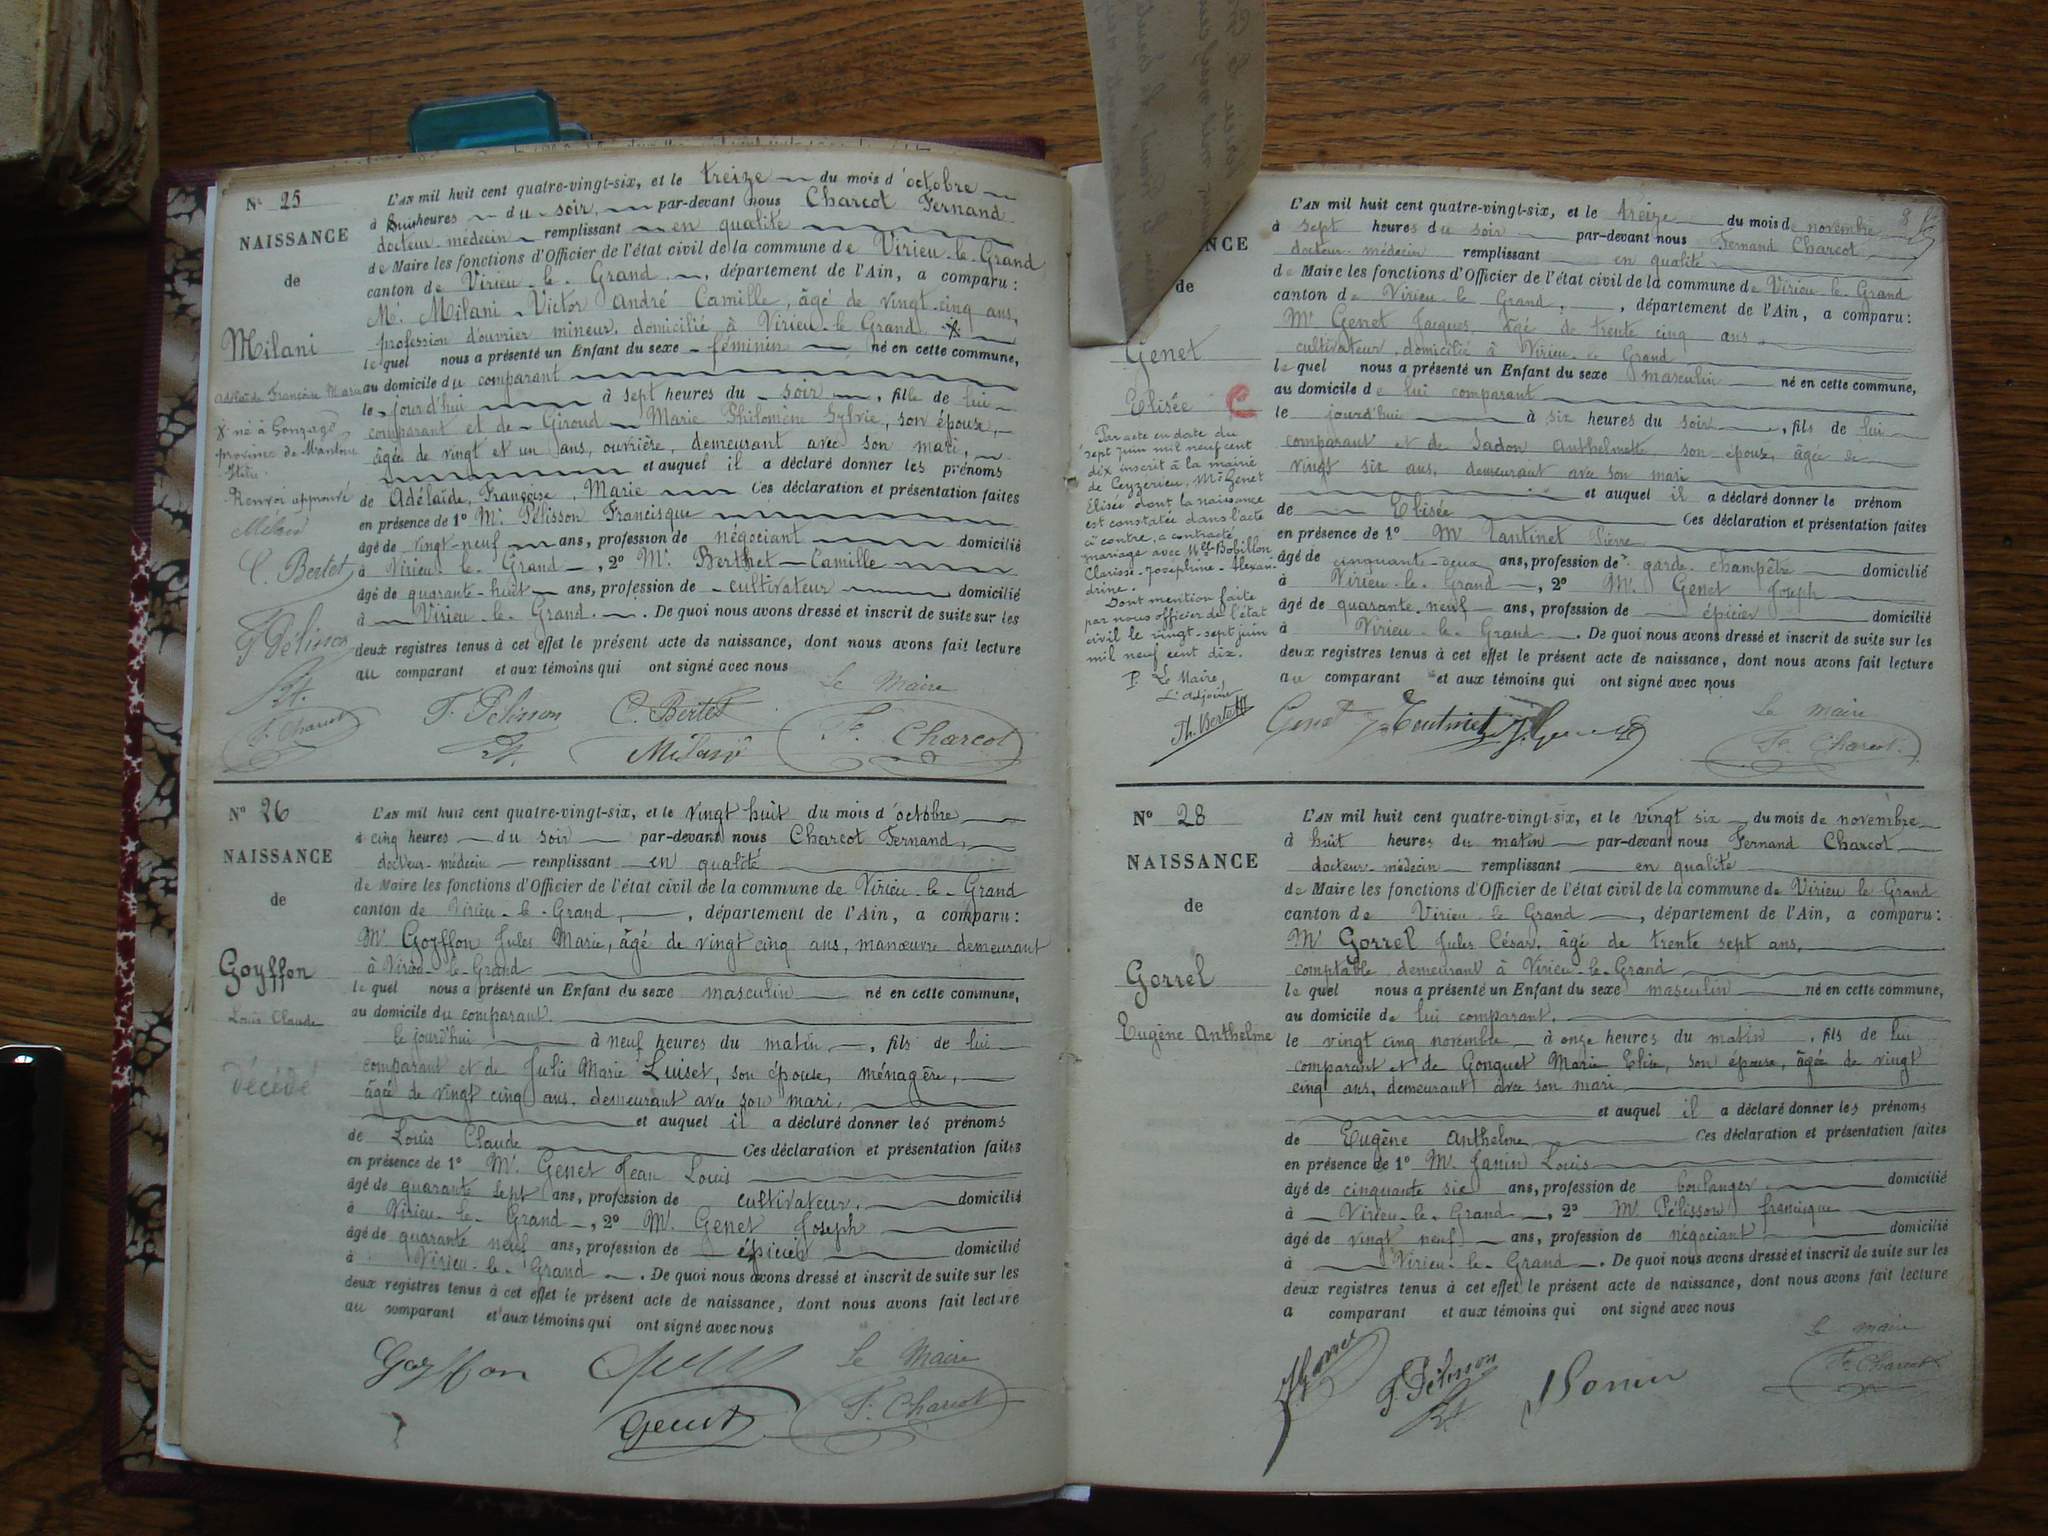 Nº 25
NAISSANCE
de
Milani
Adélaïde Françoise Marie
X né à Gonzaga
province de Mantoue
Italie
Renvoi approuvé
Milani
C. Bertet
F. Pélisson
F. Charcot
L'AN mil huit cent quatre-vingt-six, et le treize du mois d'octobre
à huit heures du soir par-devant nous Charcot Fernand
docteur-médecin remplissant en qualité
de Maire les fonctions d'Officier de l'état civil de la commune de Virieu-le-Grand
canton de Virieu-le-Grand, département de l'Ain, a comparu:
M. Milani Victor André Camille, âgé de vingt-cinq ans,
profession d'ouvrier mineur, domicilié à Virieu-le-Grand X
lequel nous a présenté un Enfant du sexe féminin né en cette commune,
au domicile du comparant
le jourd'hui à sept heures du soir, fille de lui
comparant et de Giroud Marie Philomène Sylvie, son épouse,
âgée de vingt et un ans, ouvrière, demeurant avec son mari,
et auquel il a déclaré donner les prénoms
de Adélaïde, Françoise, Marie Ces déclaration et présentation faites
en présence de 1º M. Pélisson Francisque
âgé de vingt-neuf ans, profession de négociant domicilié
à Virieu-le-Grand, 2º M. Berthet Camille
âgé de quarante-huit ans, profession de cultivateur domicilié
à Virieu-le-Grand. De quoi nous avons dressé et inscrit de suite sur les
deux registres tenus à cet effet le présent acte de naissance, dont nous avons fait lecture
au comparant et aux témoins qui ont signé avec nous
Le Maire
F. Pélisson C. Bertet F. Charcot
Milani
Nº 26
NAISSANCE
de
Goyffon
Louis Claude
décédé
L'AN mil huit cent quatre-vingt-six, et le vingt huit du mois d'octobre
à cinq heures du soir par-devant nous Charcot Fernand,
docteur-médecin remplissant en qualité
de Maire les fonctions d'Officier de l'état civil de la commune de Virieu-le-Grand
canton de Virieu-le-Grand, département de l'Ain, a comparu:
M. Goyffon Jules Marie, âgé de vingt cinq ans, manœuvre demeurant
à Virieu-le-Grand
lequel nous a présenté un Enfant du sexe masculin né en cette commune,
au domicile du comparant
le jourd'hui à neuf heures du matin, fils de lui
comparant et de Julie Marie Luiset, son épouse, ménagère,
âgée de vingt cinq ans, demeurant avec son mari,
et auquel il a déclaré donner les prénoms
de Louis Claude Ces déclaration et présentation faites
en présence de 1º M. Genet Jean Louis
âgé de quarante sept ans, profession de cultivateur, domicilié
à Virieu-le-Grand, 2º M. Genet Joseph
âgé de quarante neuf ans, profession de épicier domicilié
à Virieu-le-Grand. De quoi nous avons dressé et inscrit de suite sur les
deux registres tenus à cet effet le présent acte de naissance, dont nous avons fait lecture
au comparant et aux témoins qui ont signé avec nous
Goyffon Le Maire
Genet F. Charcot
NCE
de
Genet
Elisée
Par acte en date du
sept juin mil neuf cent
dix inscrit à la mairie
de Ceyzerieu, Mr Genet
Elisée dont la naissance
est constatée dans l'acte
ci contre, a contracté
mariage avec Melle Bobillon
Clarisse-Joséphine-Alexan-
drine.
Dont mention faite
par nous officier de l'état
civil le vingt-sept juin
mil neuf cent dix.
P. Le Maire,
L'adjoint
Th. Bertet
L'AN mil huit cent quatre-vingt-six, et le treize du mois de novembre 8
à sept heures du soir par-devant nous Fernand Charcot
docteur-médecin remplissant en qualité
de Maire les fonctions d'Officier de l'état civil de la commune de Virieu-le-Grand
canton de Virieu-le-Grand, département de l'Ain, a comparu:
M. Genet Jacques, âgé de trente cinq ans
cultivateur, domicilié à Virieu-le-Grand
lequel nous a présenté un Enfant du sexe masculin né en cette commune,
au domicile de lui comparant
le jourd'hui à six heures du soir, fils de lui
comparant et de Anthelmette, son épouse, âgée de
vingt six ans, demeurant avec son mari
et auquel il a déclaré donner le prénom
de Elisée Ces déclaration et présentation faites
en présence de 1º M. Pierre
âgé de cinquante-deux ans, profession de garde-champêtre domicilié
à Virieu-le-Grand, 2º M. Genet Joseph
âgé de quarante-neuf ans, profession de épicier domicilié
à Virieu-le-Grand. De quoi nous avons dressé et inscrit de suite sur les
deux registres tenus à cet effet le présent acte de naissance, dont nous avons fait lecture
au comparant et aux témoins qui ont signé avec nous
Le Maire
Genet F. Charcot
Nº 28
NAISSANCE
de
Gorrel
Eugène Anthelme
L'AN mil huit cent quatre-vingt-six, et le vingt six du mois de novembre
à huit heures du matin par-devant nous Fernand Charcot
docteur-médecin remplissant en qualité
de Maire les fonctions d'Officier de l'état civil de la commune de Virieu le Grand
canton de Virieu-le-Grand, département de l'Ain, a comparu:
M. Gorrel Jules César, âgé de trente sept ans,
comptable demeurant à Virieu-le-Grand
lequel nous a présenté un Enfant du sexe masculin né en cette commune,
au domicile de lui comparant,
le vingt cinq novembre à onze heures du matin, fils de lui
comparant et de Gonguet Marie Elise, son épouse, âgée de vingt
cinq ans, demeurant avec son mari
et auquel il a déclaré donner les prénoms
de Eugène Anthelme Ces déclaration et présentation faites
en présence de 1º M. Janin Louis
âgé de cinquante six ans, profession de boulanger domicilié
à Virieu-le-Grand, 2º M. Pélisson Francisque
âgé de vingt neuf ans, profession de négociant domicilié
à Virieu-le-Grand. De quoi nous avons dressé et inscrit de suite sur les
deux registres tenus à cet effet le présent acte de naissance, dont nous avons fait lecture
a comparant et aux témoins qui ont signé avec nous
Le Maire
F. Pélisson F. Charcot